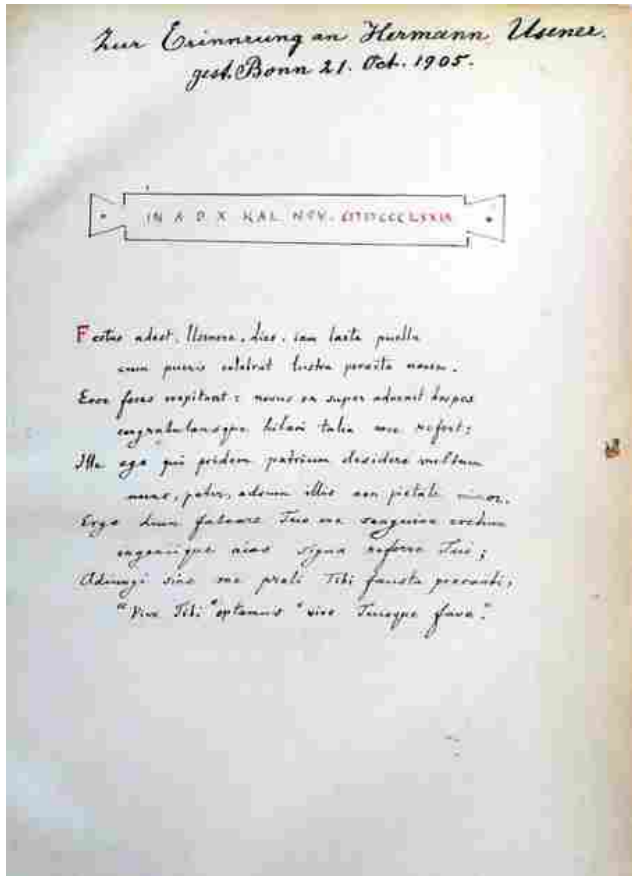 Zur Erinnerung an Hermann Usener.
gest. Bonn 21. Oct. 1905.
IN A D X KAL NOV.
Festus adest, Usenere, dies, iam laeta puella
cum pueris celebrat lustra peracta novem.
Ecce fores crepitant: novus en super advenit hospes
congratulansque hilari talia voce refert:
Ille ego qui pridem patrium desidero vultum
nunc, pater, adsum illis non pietate minor.
Ergo tuum fateare Tuo me sanguine cretum
ingeniique aias signa referre Tui;
Adiungi sine me proli Tibi fausta precanti,
"Vive Tibi" optamus "vive Tuisque fave."